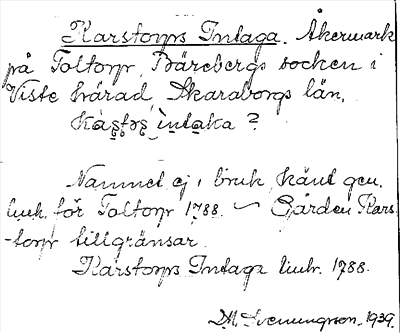 Karstorps Intaga. Åkermark
på Toltorp, Bärebergs socken i
Viste härad, Skaraborgs län.
intaka ?
Namnet ej i bruk, känt gen.
lmk. för Toltorp 1788. ~ Gården Kars-
-torp tillgränsar.
Karstorps Intaga lmhr. 1788.
D.M. Svenungsson. 1939.